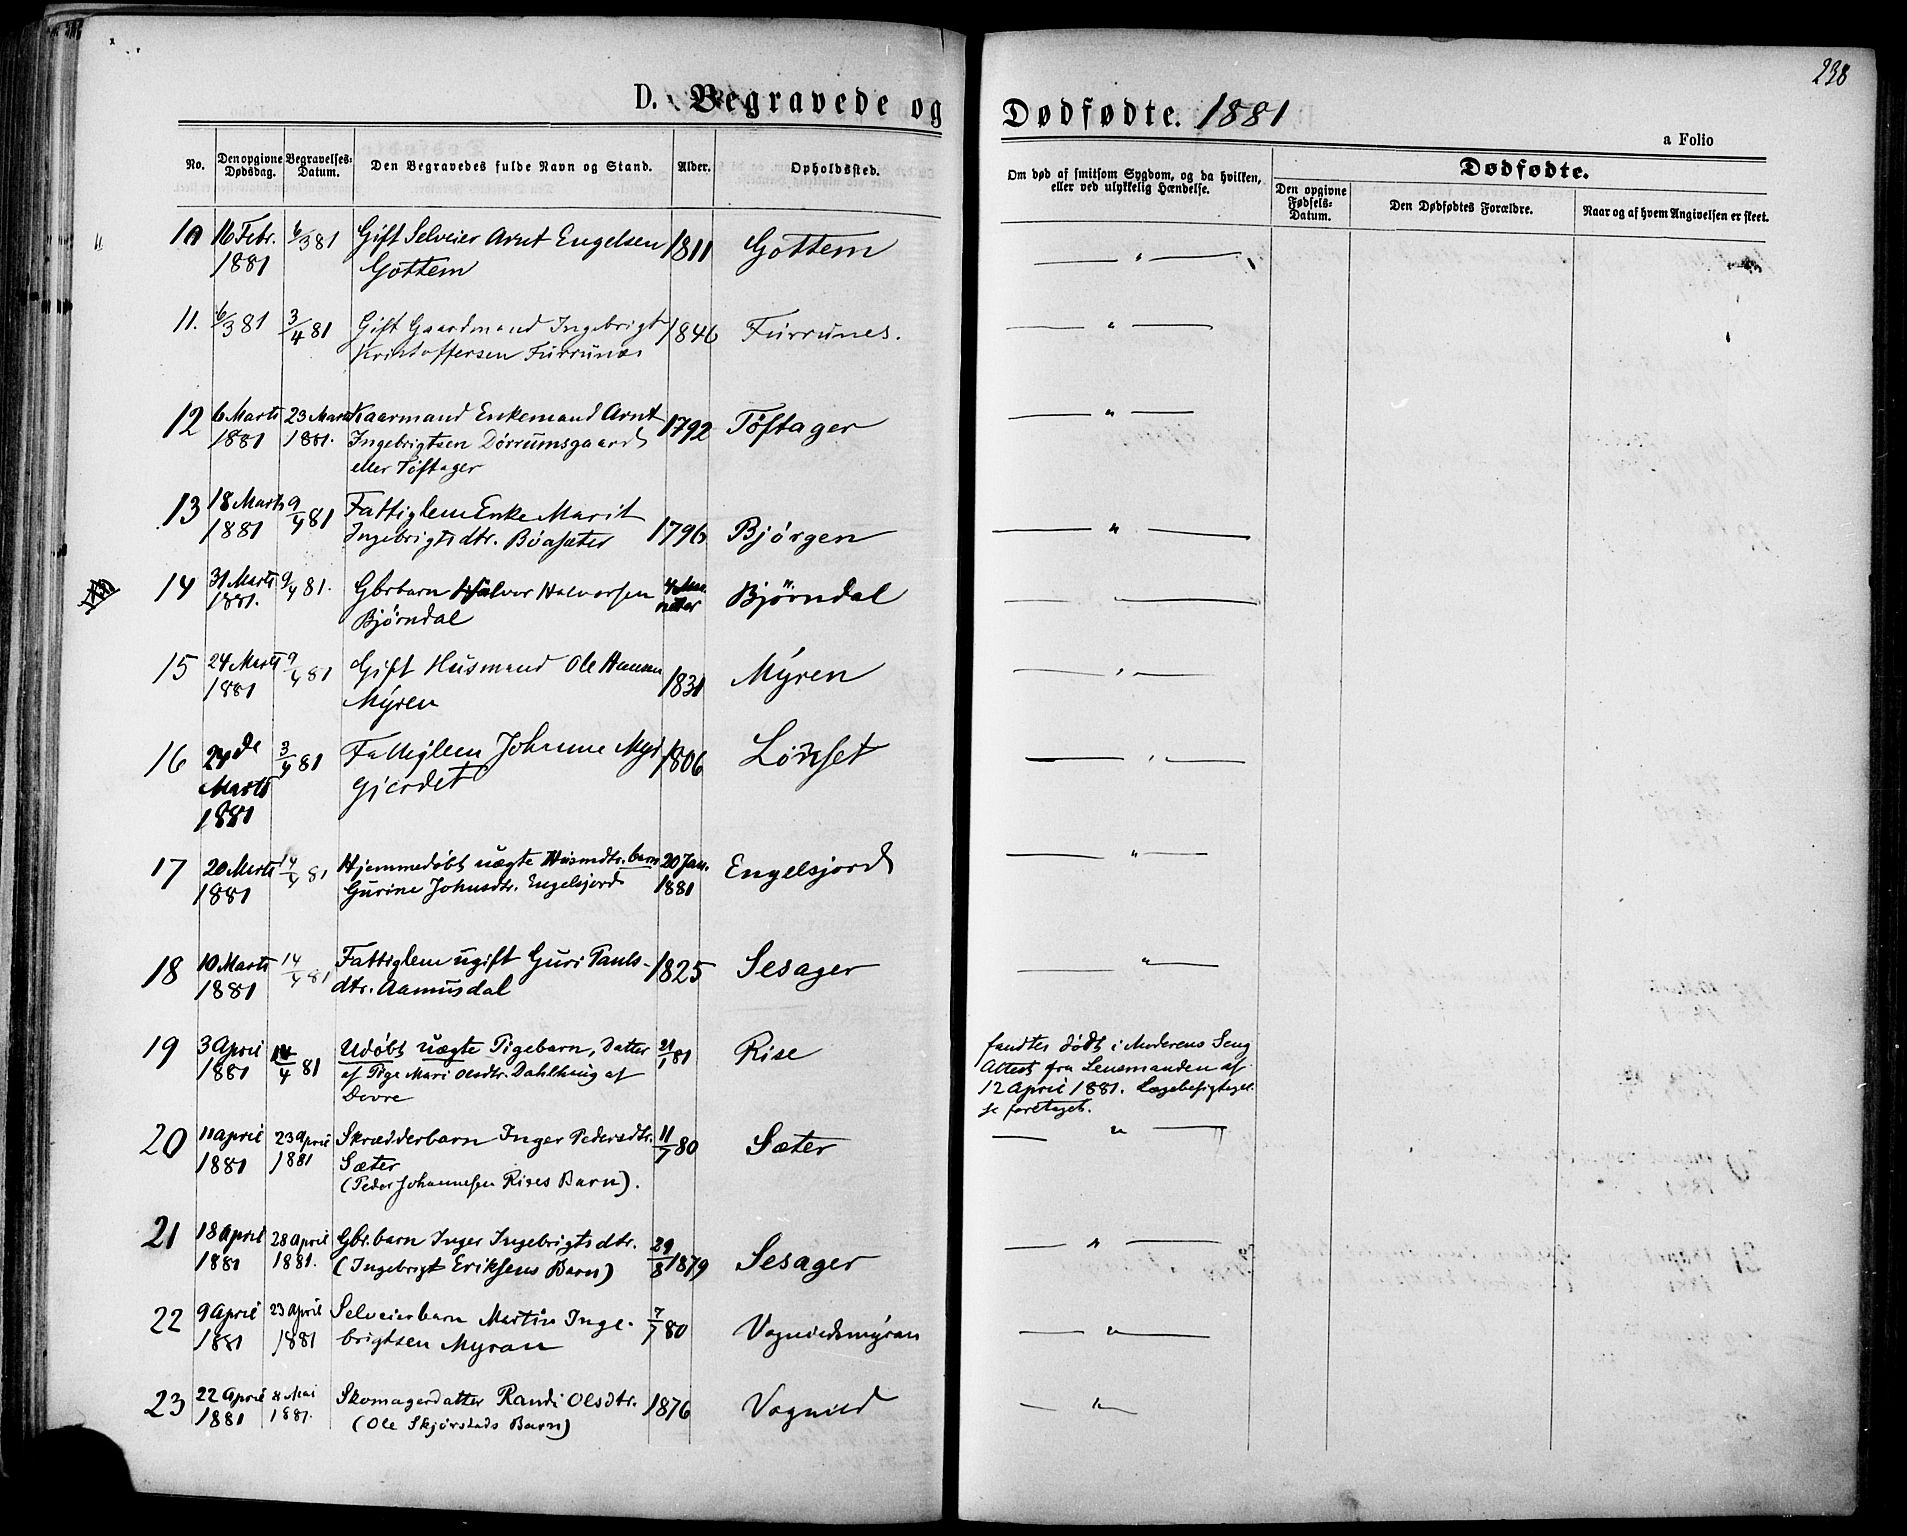 238
D. Begravede og Dødfødte. 1881
a Folio
No. Den opgivne Dødsdag. Begravelses-Datum. Den Begravedes fulde Navn og Stand. Alder. Opholdssted. Om død af smitsom Sygdom, og da hvilken, eller ved ulykkelig Hændelse. Dødfødte.
Den opgivne Fødsels-Datum. Den Dødfødtes Forældre. Naar og af hvem Angivelsen er skeet.
10 16 Febr. 6/3 81 Gift Selveier Arnt Engelsen 1811 Gottem — " —
1881 Gottem
11. 6/3 81 3/4 81 Gift Gaardmand Ingebrigt 1846 Furrunes. — " —
Kristoffersen Furrunes
12 6 Marts 23 Marts Kaarmand Enkemand Arnt 1792 Tøftager — " —
1881 1881. Ingebrigtsen Dørrumsgaard
eller Tøftager
13 18 Marts 9/4 81 Fattiglem Enke Marit 1796 Bjørgen — " —
1881 Ingebrigtsdtr. Bøasæter
14 31 Marts 9/4 81. Gbrbarn Halvor Halvorsen 4 Maa- Bjørndal — " —
1881. Bjørndal neder
15 24 Marts 9/4 81 Gift Husmand Ole Hansen 1831 Myren — " —
1881 Myren
16 24de 3/4 81 Fattiglem Johanne Myr 1806 Lønset — " —
Marts gjerdet
1881
17 20 Marts 14/4 81 Hjemmedøbt uægte Husmdtr. barn 20 Jan. Engelsjord — " —
1881 Gurine Johnsdtr. Engelsjord 1881
18 10 Marts 14/4 81 Fattiglem ugift Guri Pauls- 1825 Sesager — " —
1881 dtr. Aamusdal
19 3 April 14/4 81 Udøbt uægte Pigebarn, Datter 21/1 81 Rise fandtes dødt i Moderens Seng
1881 af Pige Mari Olsdtr. Dahlhaug af Attest fra Lensmanden af
Dovre 12 April 1881. Lægebesigtigel-
se foretaget.
20 11 April 23 April Skrædderbarn Inger Pedersdtr. 11/7 80 Sæter — " —
1881 1881 Sæter
(Peder Johannesen Rises Barn).
21 18 April 28 April Gbr. barn Inger Ingebrigtsdtr. 29/8 1879 Sesager — " —
1881 1881. (Ingebrigt Eriksens Barn)
22 9 April 23 April Selveierbarn Martin Inge- 7/7 80 Vognildsmyran — " —
1881 1881 brigtsen Myran
23 22 April 8 Mai Skomagerdatter Randi Olsdtr. 1876 Vognild — " —
1881 1881. (Ole Skjørstads Barn)